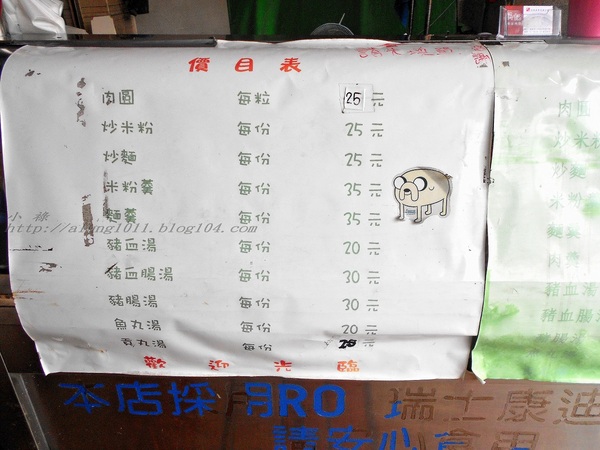 價目表
肉圓 每粒 25 元
炒米粉 每份 25 元
炒麵 每份 25 元
米粉羹 每份 35 元
麵羹 每份 35 元
豬血湯 每份 20 元
豬血腸湯 每份 30 元
豬腸湯 每份 30 元
魚丸湯 每份 20 元
貢丸湯 每份 25 元
歡迎光臨
肉圓
炒米粉
炒麵
米粉羹
麵羹
肉羹
豬血湯
豬血腸湯
豬腸湯
本店採用RO 瑞士康迪
請安心食用
小祿
http://aising1011.blog104.com